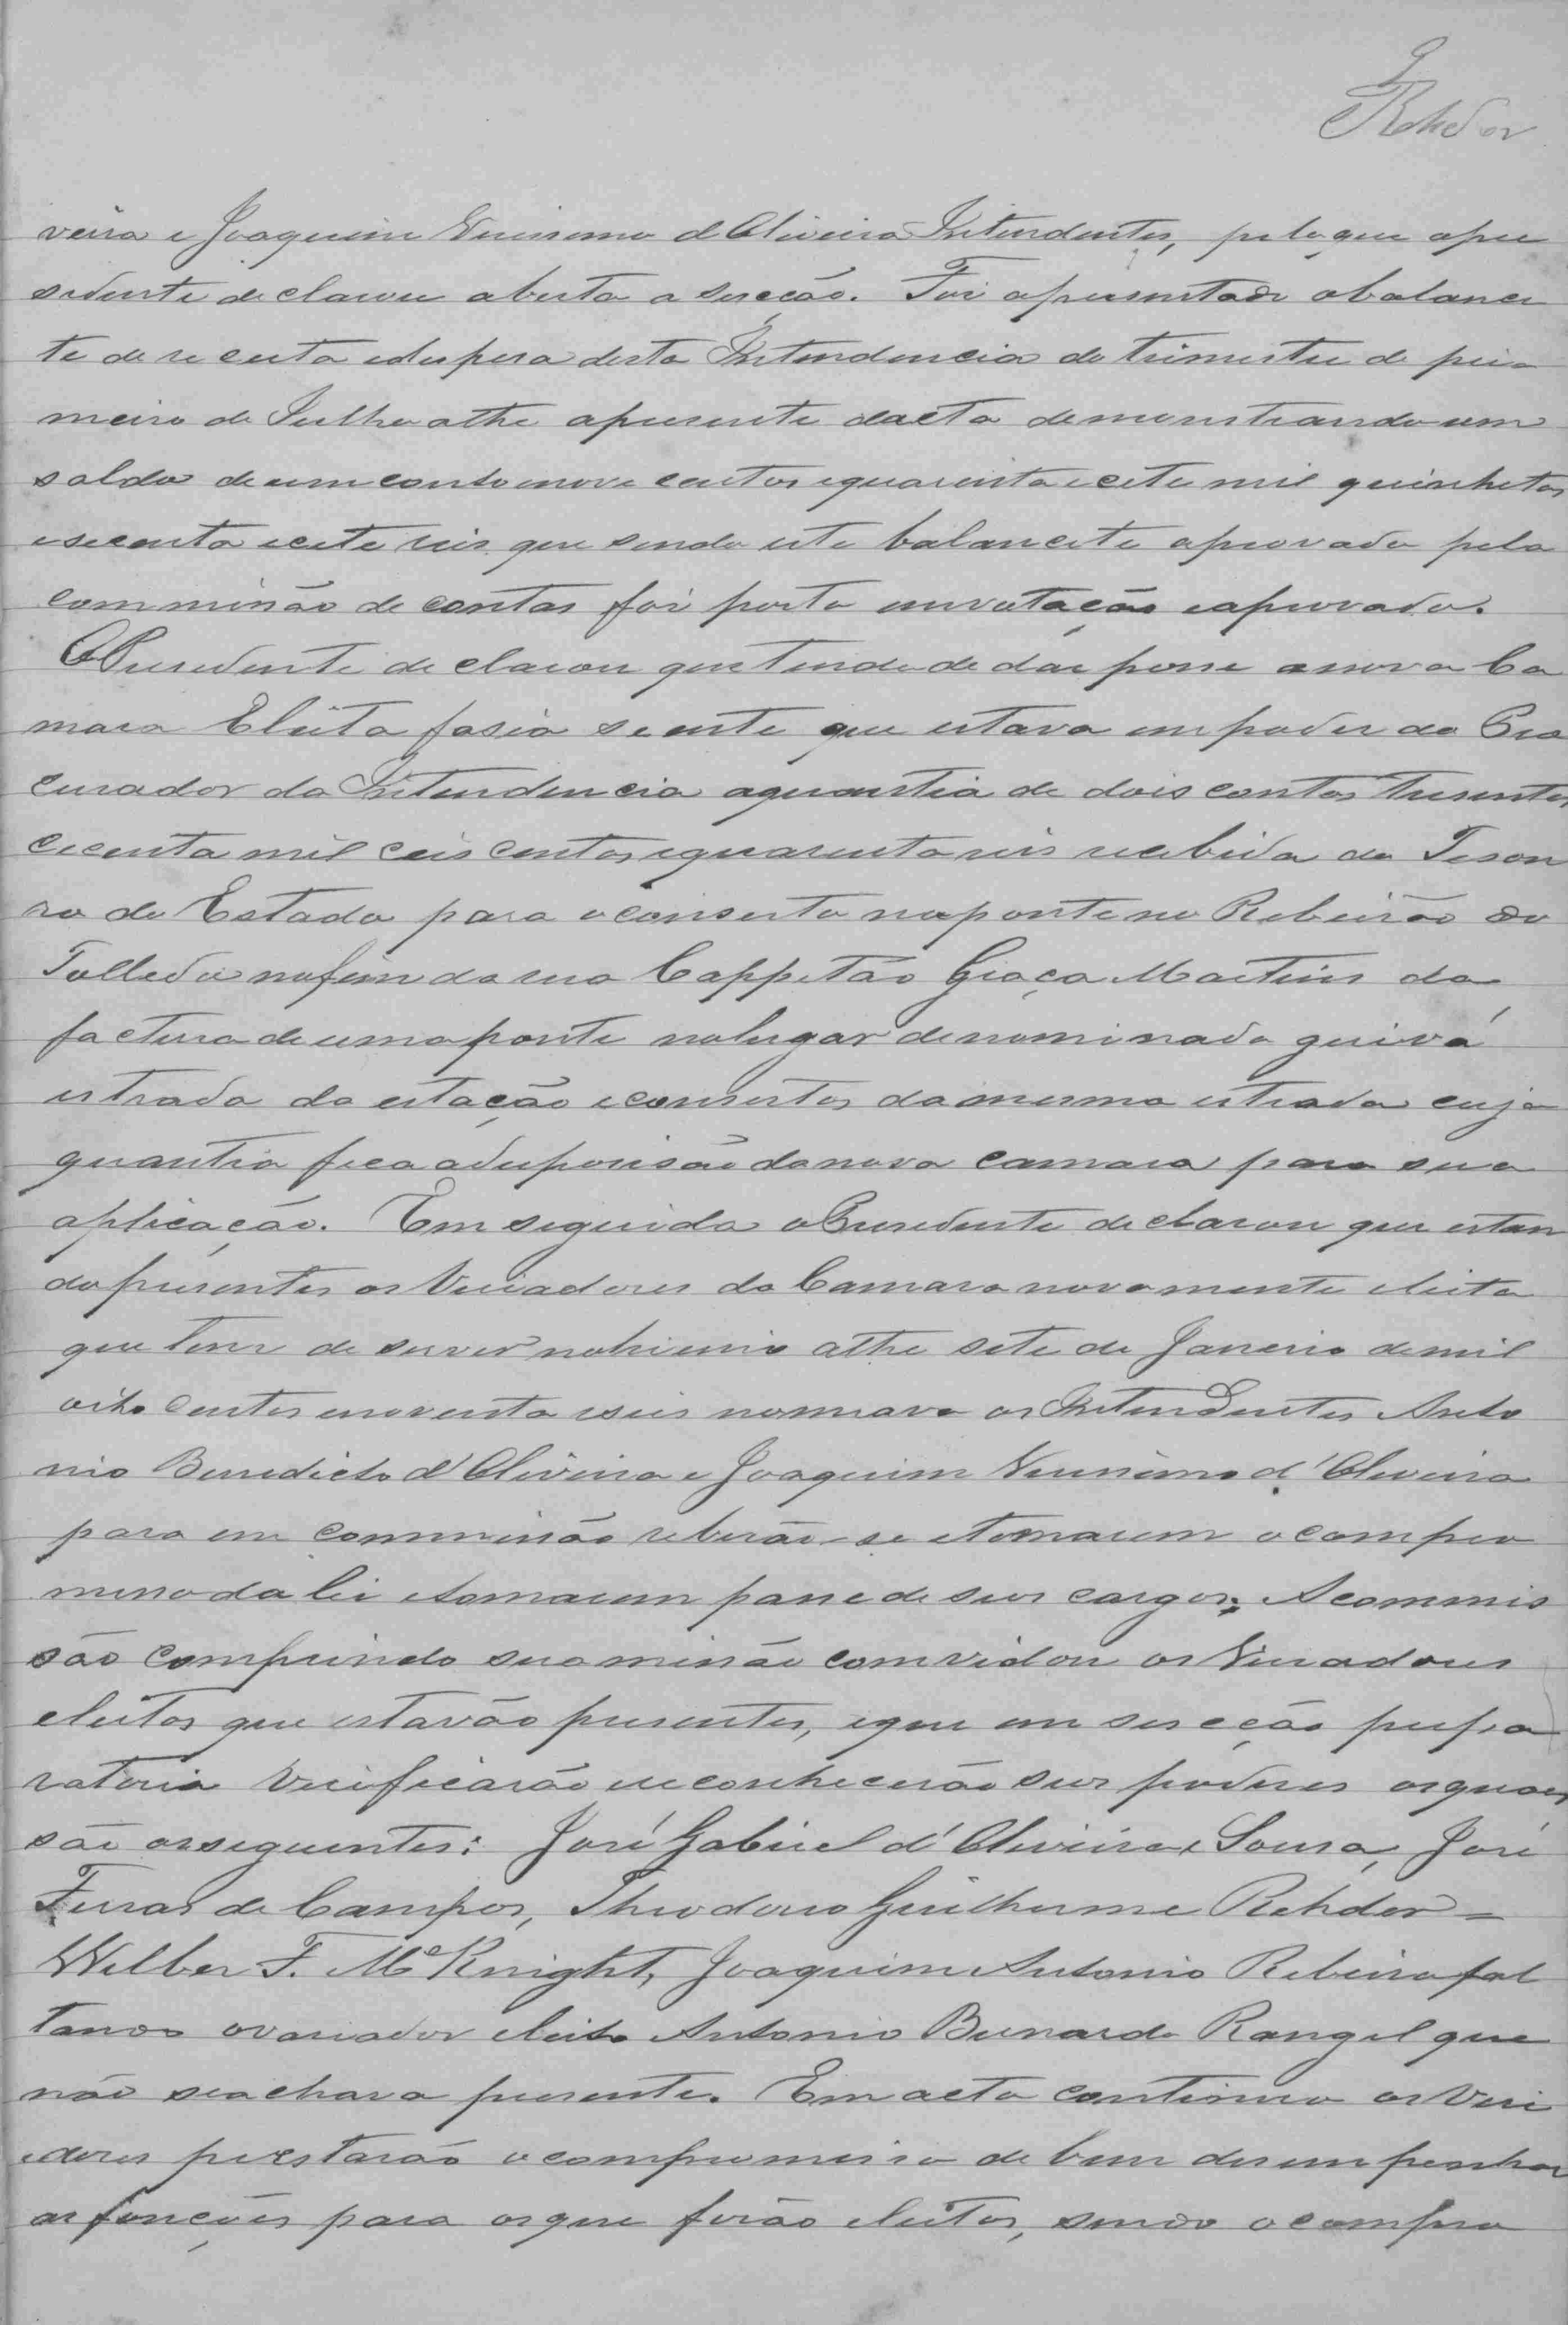 2
Rehder
veira e Joaquim Verissimo d'Oliveira Intendentes, pelo que o pre
sidente declarou aberta a secção. Foi apresentado o balance
te de receita e despesa desta Intendencia do trimestre de pri
meiro de Julho athe a presente dacta demonstrando um
saldo de um conto nove centos e quarenta e cete mil quinhetos
e secenta e cete reis que sendo este balancete aprovado pela
commissão de contas foi posto em votação e aprovado.
O Presidente declarou que tendo de dar posse a nova Ca
mara Eleita fasia sciente que estava em poder do Pro
curador da Intendencia a quantia de dois contos tresentos
cecenta mil ceis centos e quarenta reis recebida do Tesou
ro do Estado para o conserto na ponte no Ribeirão do
Tolledo no fim da rua Cappitão Graça Martins da
factura de uma ponte no lugar denominado que vá
estrada da estação e consertos da mesma estrada cuja
quantia fica a desposisão da nova camara para sua
aplicação. Em seguida o Presidente declarou que estan
do presentes os Veriadores da Camara novamente eleita
que tem de server no trienio athe sete de Janerio de mil
oito centos e noventa e seis nomeava os Intendentes Anto
nio Benedicto d'Oliveira e Joaquim Verissimo d'Oliveira
para em commissão reberão-se e tomarem o compro
misso da lei e tomarem posse de seus cargos; A commis
são comprindo sua missão comvidou os Veriadores
eleitos que estavão presentes, e que em secção prepa
ratoria verificarão e reconhecerão seus poderes os quaes
são os seguentes: José Gabriel d'Oliveira e Sousa, José
Ferras de Campos, Theodoro Guilherme Rehder =
Wilber F. McKnight, Joaquim Antonio Ribeiro fal
tando o variador eleito Antonio Bernardo Rangel que
não se achava presente. Em acto continuo os Veri
adores prestarão o compromisso de bem desempenhar
as funcções para os que forão eleitos, sendo o compro